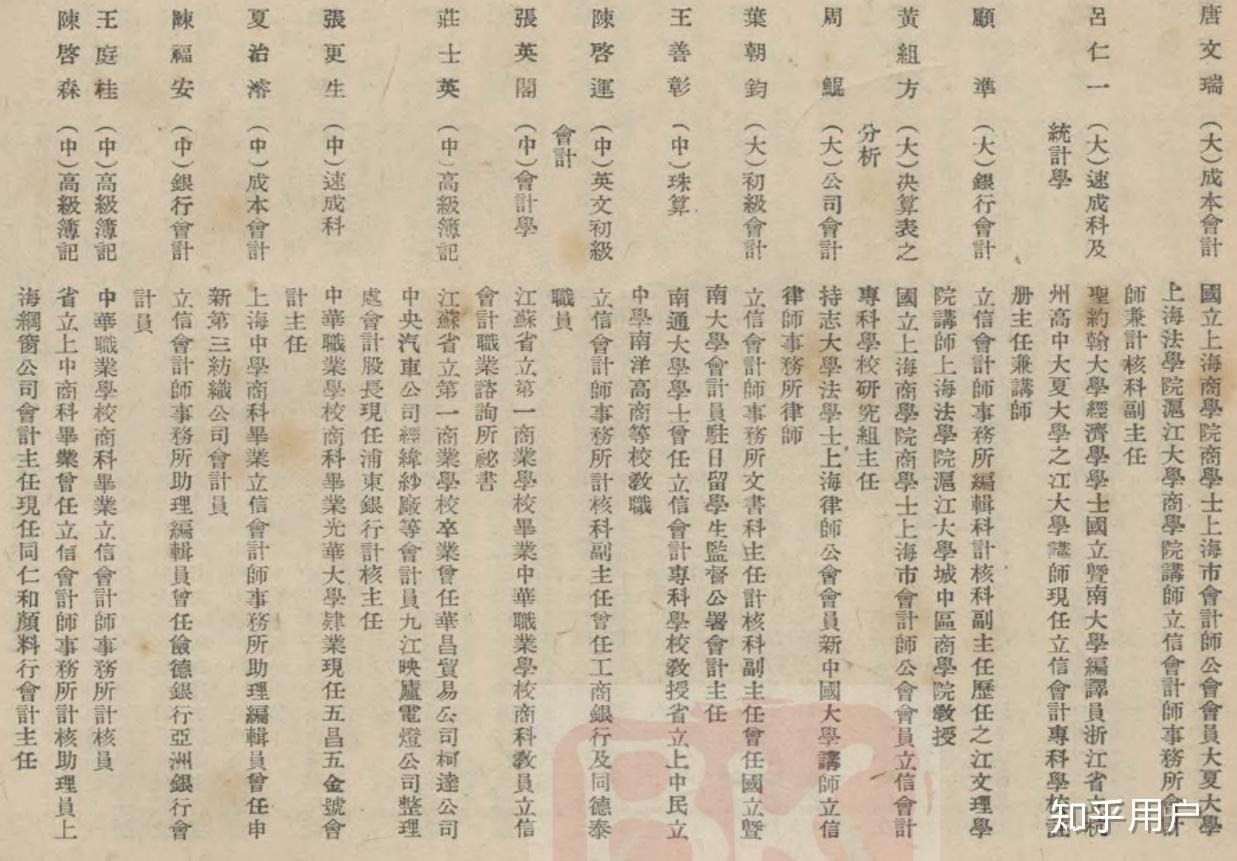 唐文瑞 (大)成本會計 國立上海商學院商學士上海市會計師公會會員大夏大學
上海法學院滬江大學商學院講師立信會計師事務所會計
師兼計核科副主任
呂仁一 (大)速成科及 聖約翰大學經濟學學士國立暨南大學編譯員浙江省立杭
統計學 州高中大夏大學之江大學講師現任立信會計專科學校註
册主任兼講師
顧準 (大)銀行會計 立信會計師事務所編輯科計核科副主任歷任之江文理學
院講師上海法學院滬江大學城中區商學院教授
黃組方 (大)決算表之 國立上海商學院商學士上海市會計師公會會員立信會計
分析 專科學校研究組主任
周鯤 (大)公司會計 持志大學法學士上海律師公會會員新中國大學講師立信
律師事務所律師
葉朝鈞 (大)初級會計 立信會計師事務所文書科主任計核科副主任曾任國立暨
南大學會計員駐日留學生監督公署會計主任
王善彰 (中)珠算 南通大學學士曾任立信會計專科學校教授省立上中民立
中學南洋高商等校教職
陳啓運 (中)英文初級 立信會計師事務所計核科副主任曾任工商銀行及同德泰
會計 職員
張英閣 (中)會計學 江蘇省立第一商業學校畢業中華職業學校商科教員立信
會計職業諮詢所祕書
莊士英 (中)高級簿記 江蘇省立第一商業學校卒業曾任華昌貿易公司柯達公司
中央汽車公司經緯紗廠等會計員九江映廬電燈公司整理
處會計股長現任浦東銀行計核主任
張更生 (中)速成科 中華職業學校商科畢業光華大學肄業現任五昌五金號會
計主任
夏治濬 (中)成本會計 上海中學商科畢業立信會計師事務所助理編輯員曾任申
新第三紡織公司會計員
陳福安 (中)銀行會計 立信會計師事務所助理編輯員曾任儉德銀行亞洲銀行會
計員
王庭桂 (中)高級簿記 中華職業學校商科畢業立信會計師事務所計核員
陳啓森 (中)高級簿記 省立上中商科畢業曾任立信會計師事務所計核助理員上
海綢窗公司會計主任現任同仁和顏料行會計主任
BK
知乎用户